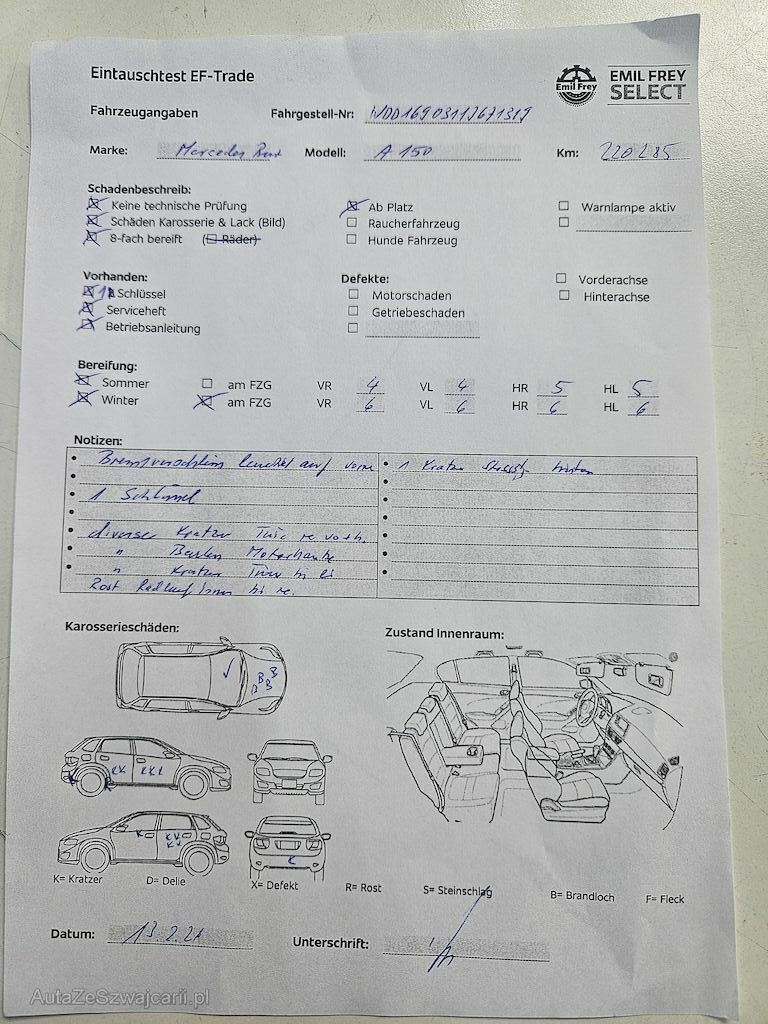 Eintauschtest EF-Trade
Emil Frey
EMIL FREY
SELECT
Fahrzeugangaben Fahrgestell-Nr: WDD1690311J671319
Marke: Mercedes Benz Modell: A 150 Km: 220285
Schadenbeschreib:
Keine technische Prüfung Ab Platz Warnlampe aktiv
Schäden Karosserie & Lack (Bild) Raucherfahrzeug
8-fach bereift (Räder) Hunde Fahrzeug
Vorhanden: Defekte: Vorderachse
1 Schlüssel Motorschaden Hinterachse
Serviceheft Getriebeschaden
Betriebsanleitung
Bereifung:
Sommer am FZG VR 4 VL 4 HR 5 HL 5
Winter am FZG VR 6 VL 6 HR 6 HL 6
Notizen:
Bremsverschleiss leuchtet auf vorne
1 Kratzer hinten
1 Schlüssel
diverse Kratzer Türe re
" Beulen Motorhaube
" Kratzer Türe hi li
Rost Radlauf innen hi re.
Karosserieschäden: Zustand Innenraum:
B B
D B
KK KKK
K KK
K
K= Kratzer D= Delle X= Defekt R= Rost S= Steinschlag B= Brandloch F= Fleck
Datum: 13.2.21 Unterschrift:
AutaZeSzwajcarii.pl